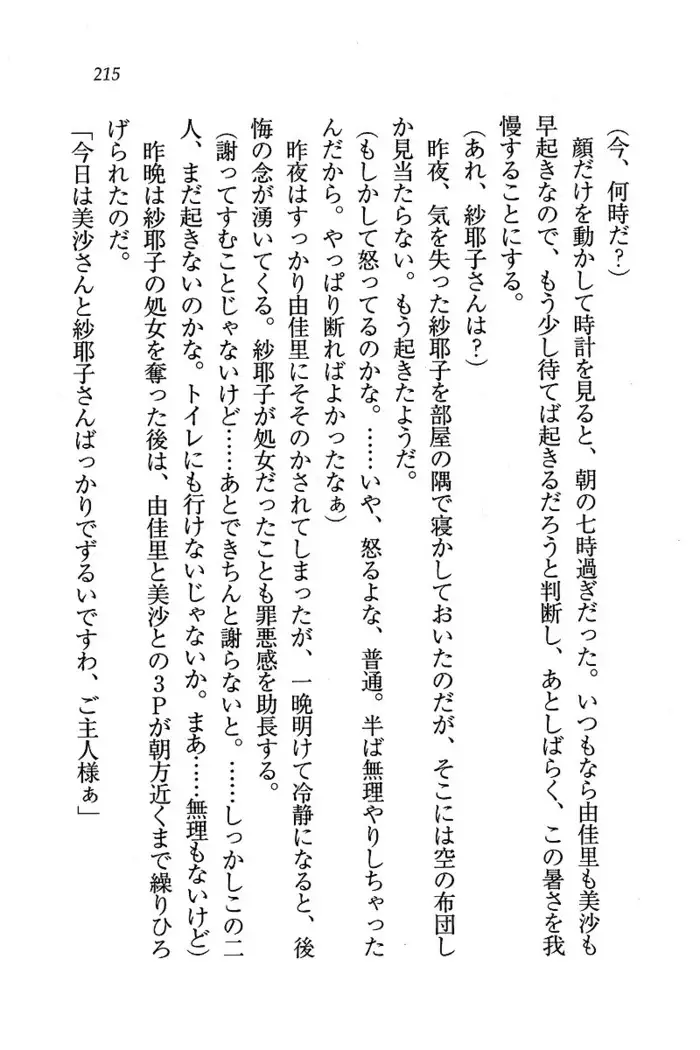 215
（今、何時だ？）
　顔だけを動かして時計を見ると、朝の七時過ぎだった。いつもなら由佳里も美沙も
早起きなので、もう少し待てば起きるだろうと判断し、あとしばらく、この暑さを我
慢することにする。
（あれ、紗耶子さんは？）
　昨夜、気を失った紗耶子を部屋の隅で寝かしておいたのだが、そこには空の布団し
か見当たらない。もう起きたようだ。
（もしかして怒ってるのかな。……いや、怒るよな、普通。半ば無理やりしちゃった
んだから。やっぱり断ればよかったなぁ）
　昨夜はすっかり由佳里にそそのかされてしまったが、一晩明けて冷静になると、後
悔の念が湧いてくる。紗耶子が処女だったことも罪悪感を助長する。
（謝ってすむことじゃないけど……あとできちんと謝らないと。……しっかしこの二
人、まだ起きないのかな。トイレにも行けないじゃないか。まあ……無理もないけど）
　昨晩は紗耶子の処女を奪った後は、由佳里と美沙との３Ｐが朝方近くまで繰りひろ
げられたのだ。
「今日は美沙さんと紗耶子さんばっかりでずるいですわ、ご主人様ぁ」